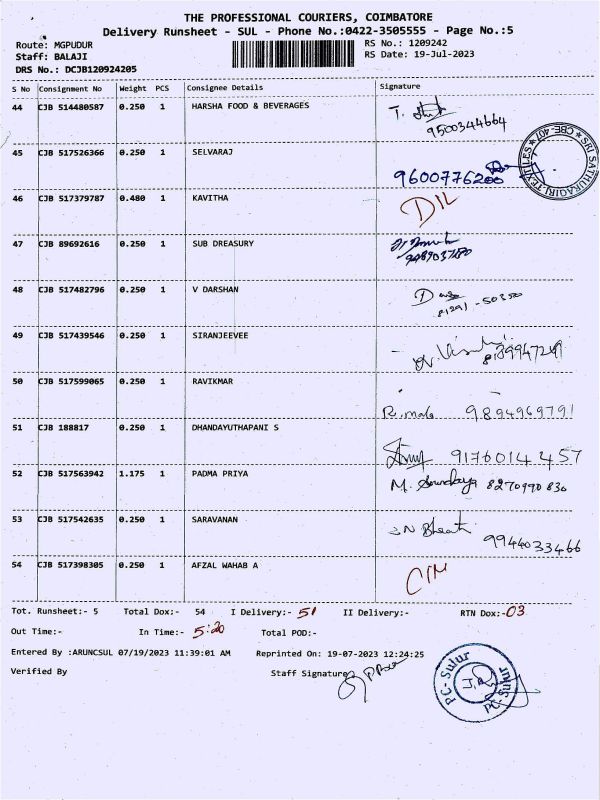 THE PROFESSIONAL COURIERS, COIMBATORE
Delivery Runsheet - SUL - Phone No.:0422-3505555 - Page No.:5
Route: MGPUDUR RS No.: 1209242
Staff: BALAJI RS Date: 19-Jul-2023
DRS No.: DCJB120924205
S No Consignment No Weight PCS Consignee Details Signature
44 CJB 514480587 0.250 1 HARSHA FOOD & BEVERAGES T.
9500344664
45 CJB 517526366 0.250 1 SELVARAJ
9600776200
SRI SATHURAGIRI TEXTILES ★ CBE-407 ★
46 CJB 517379787 0.480 1 KAVITHA DIL
47 CJB 89692616 0.250 1 SUB DREASURY
48 CJB 517482796 0.250 1 V DARSHAN
49 CJB 517439546 0.250 1 SIRANJEEVEE
50 CJB 517599065 0.250 1 RAVIKMAR
R. mala 9894969791
51 CJB 188817 0.250 1 DHANDAYUTHAPANI S
9176014457
52 CJB 517563942 1.175 1 PADMA PRIYA M. Soundarya 8270990830
53 CJB 517542635 0.250 1 SARAVANAN
9944033466
54 CJB 517398305 0.250 1 AFZAL WAHAB A
Tot. Runsheet:- 5 Total Dox:- 54 I Delivery:- 51 II Delivery:- RTN Dox:-03
Out Time:- In Time:- 5:20 Total POD:-
Entered By :ARUNCSUL 07/19/2023 11:39:01 AM Reprinted On: 19-07-2023 12:24:25
Verified By Staff Signature
PC-Sulur PC-Sulur